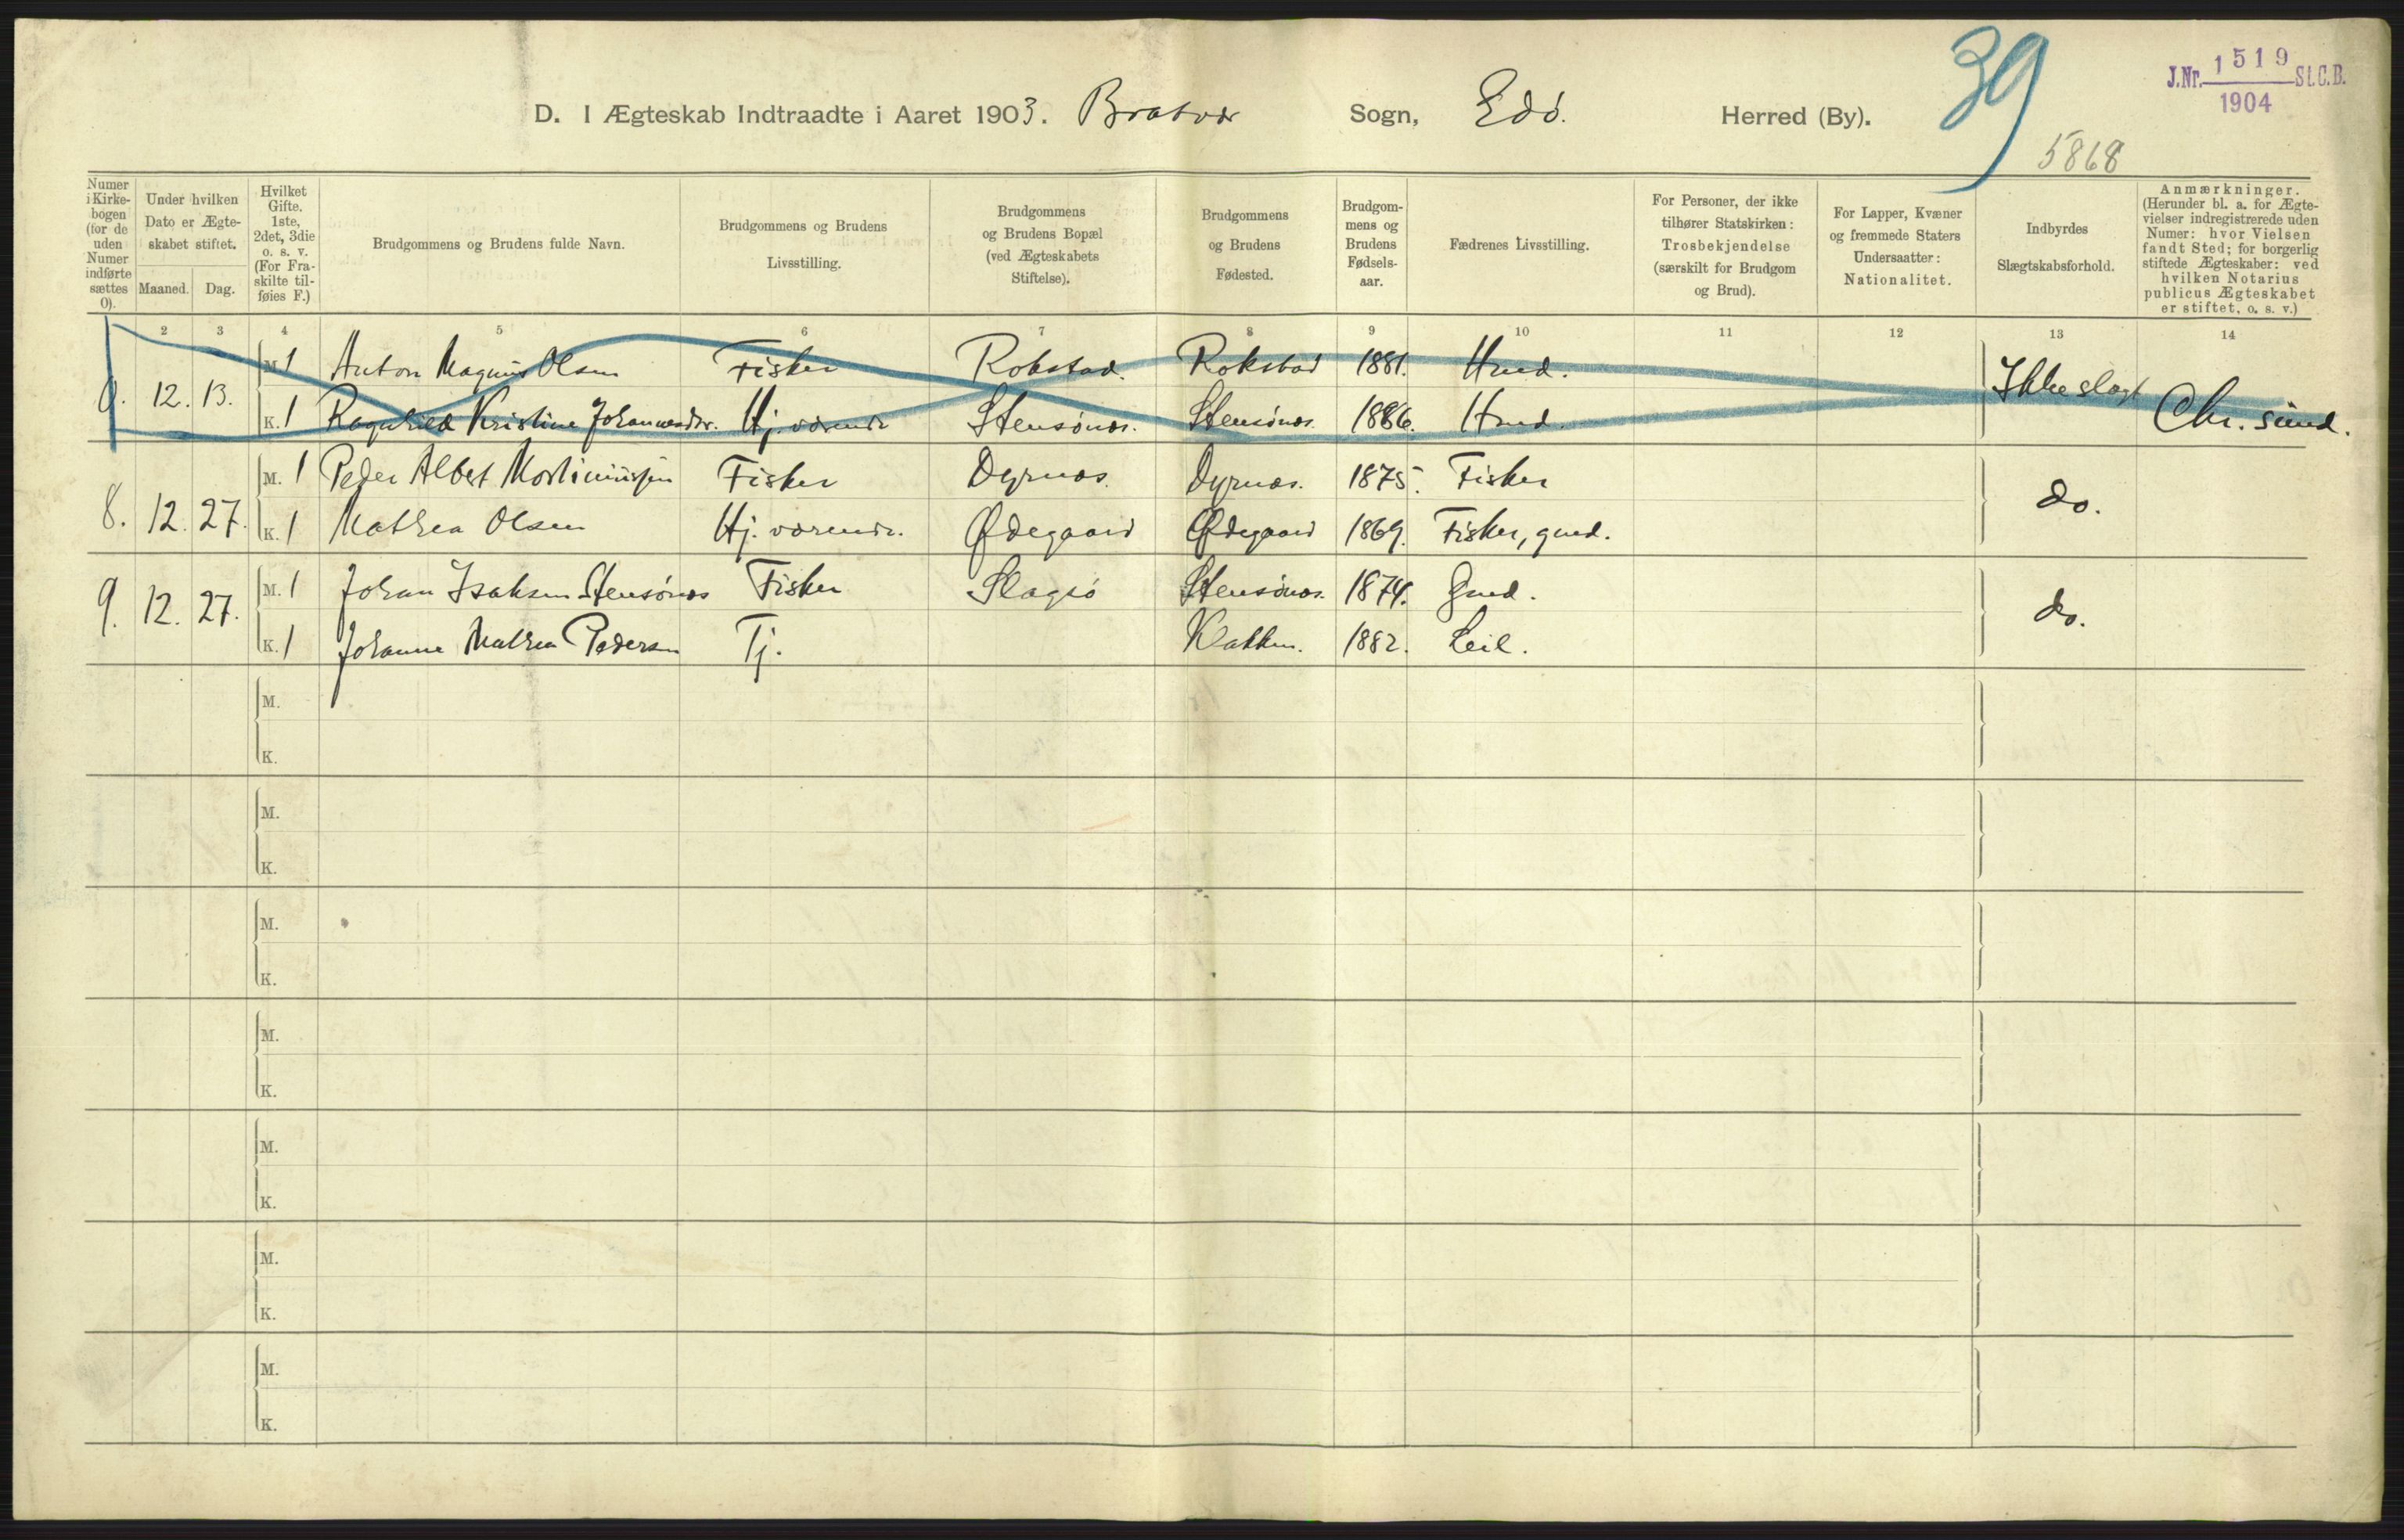 39
J.Nr. 1519 St.C.B.
1904
5868
D. I Ægteskab Indtraadte i Aaret 1903. Bratvær Sogn, Edø. Herred (By).
Numer i Kirke-bogen (for de uden Numer indførte sættes 0).
Under hvilken Dato er Ægte-skabet stiftet.
Maaned. Dag.
Hvilket Gifte. 1ste, 2det, 3die o. s. v. (For Fra-skilte til-føies F.)
Brudgommens og Brudens fulde Navn.
Brudgommens og Brudens Livsstilling.
Brudgommens og Brudens Bopæl (ved Ægteskabets Stiftelse).
Brudgommens og Brudens Fødested.
Brudgom-mens og Brudens Fødsels-aar.
Fædrenes Livsstilling.
For Personer, der ikke tilhører Statskirken: Trosbekjendelse (særskilt for Brudgom og Brud).
For Lapper, Kvæner og fremmede Staters Undersaatter: Nationalitet.
Indbyrdes Slægtskabsforhold.
Anmærkninger. (Herunder bl. a. for Ægte-vielser indregistrerede uden Numer: hvor Vielsen fandt Sted; for borgerlig stiftede Ægteskaber: ved hvilken Notarius publicus Ægteskabet er stiftet, o. s. v.)
2 3 4 5 6 7 8 9 10 11 12 13 14
0. 12. 13. M. 1 Anton Magnus Olsen Fisker Rokstad. Rokstad 1881. Hmd. Ikke slægt Chr. sund.
K. 1 Ragnhild Kristine Johannesdr. Hj. værende Stensønæs. Stensønæs. 1886. Hmd.
8. 12. 27. M. 1 Peder Albert Mortinussen Fisker Dyrnæs. Dyrnæs. 1875. Fisker do.
K. 1 Mathea Olsen Hj. værende. Ødegaard Ødegaard 1869. Fisker, gmd.
9. 12. 27. M. 1 Johan Isaksen Stensønæs Fisker Slagsø Stensønæs. 1874. Gmd. do.
K. 1 Johanne Mathea Pedersen Tj. Klakken. 1882. Leil.
M.
K.
M.
K.
M.
K.
M.
K.
M.
K.
M.
K.
M.
K.